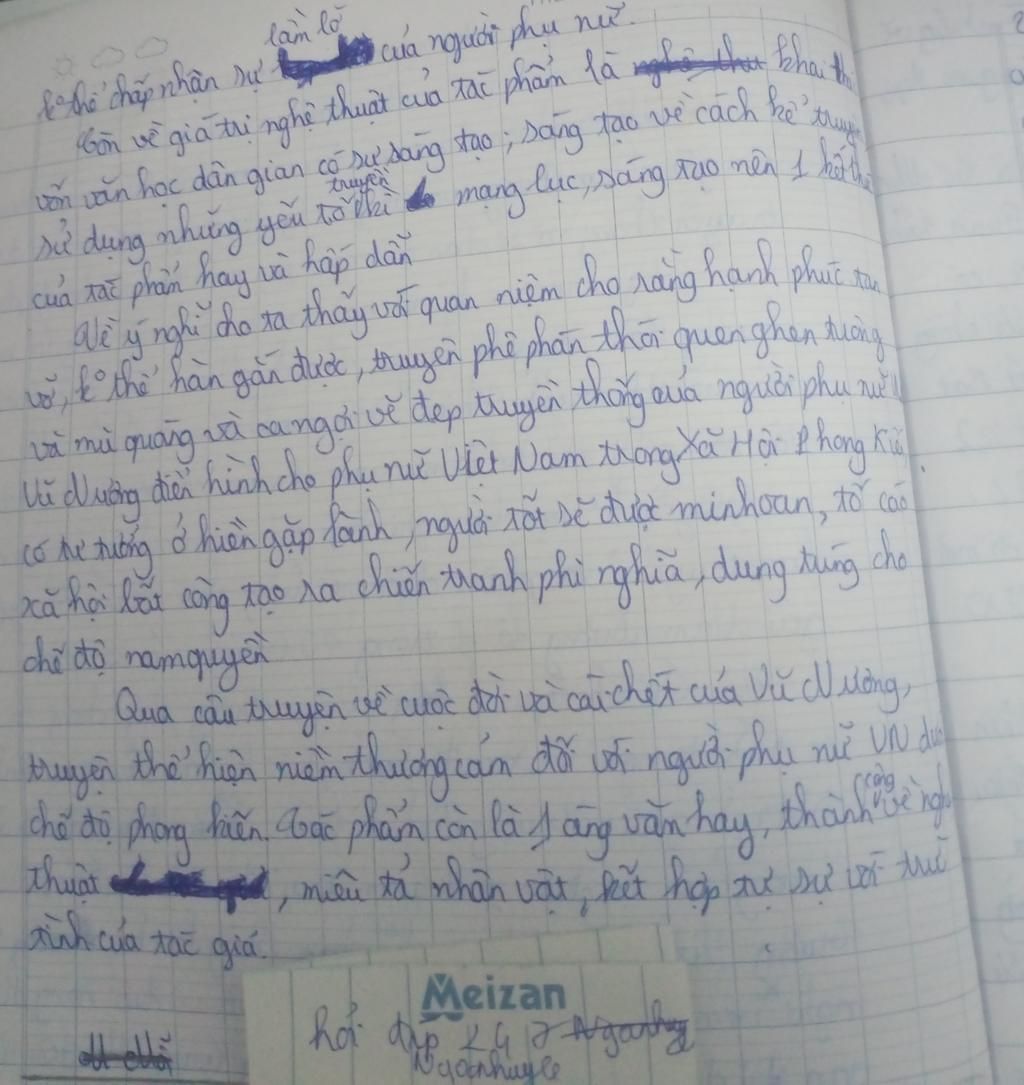 lầm lỡ
k° thể chấp nhận sự của người phụ nữ.
Còn về giá trị nghệ thuật của tác phẩm là khai th
vốn văn học dân gian có sự sáng tạo, sáng tạo về cách kể truyện
truyền
sử dụng những yếu tố kì mạng lục, sáng tạo nên 1 kết th
của tác phẩm hay và hấp dẫn
Về ý nghĩ cho ta thấy với quan niệm cho rằng hạnh phúc tan
vỡ, k° thể hàn gắn được, truyện phê phán thói quen ghen tuông
và mù quáng và ca ngợi vẻ đẹp truyền thống của người phụ nữ
Vũ Nương điển hình cho phụ nữ Việt Nam trong Xã Hội Phong Kiế
có tư tưởng ở hiền gặp lành, người tốt sẽ được minh oan, tố cáo
xã hội bất công tạo ra chiến tranh phi nghĩa, dung túng cho
chế độ nam quyền
Qua câu truyện về cuộc đời và cái chết của Vũ Nương,
truyện thể hiện niềm thương cảm đối với người phụ nữ VN dư
công
chế độ phong kiến. Tác phẩm còn là 1 áng văn hay, thành về ngh
thuật , miêu tả nhân vật, kết hợp tự sự với trữ
tình của tác giả.
Meizan
hỏi đáp 247
Ngocnhuyle